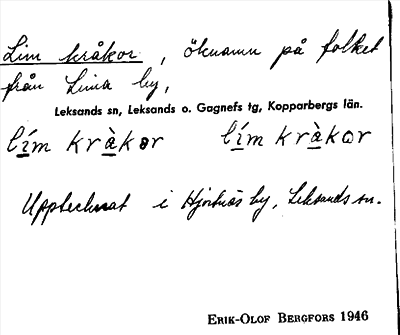 Lim kråkor, öknamn på folket
från Lima by,
Leksands sn, Leksands o. Gagnefs tg, Kopparbergs län.
lím kràkor lím kràkor
Upptecknat i Hjortnäs by, Leksands sn.
ERIK-OLOF BERGFORS 1946